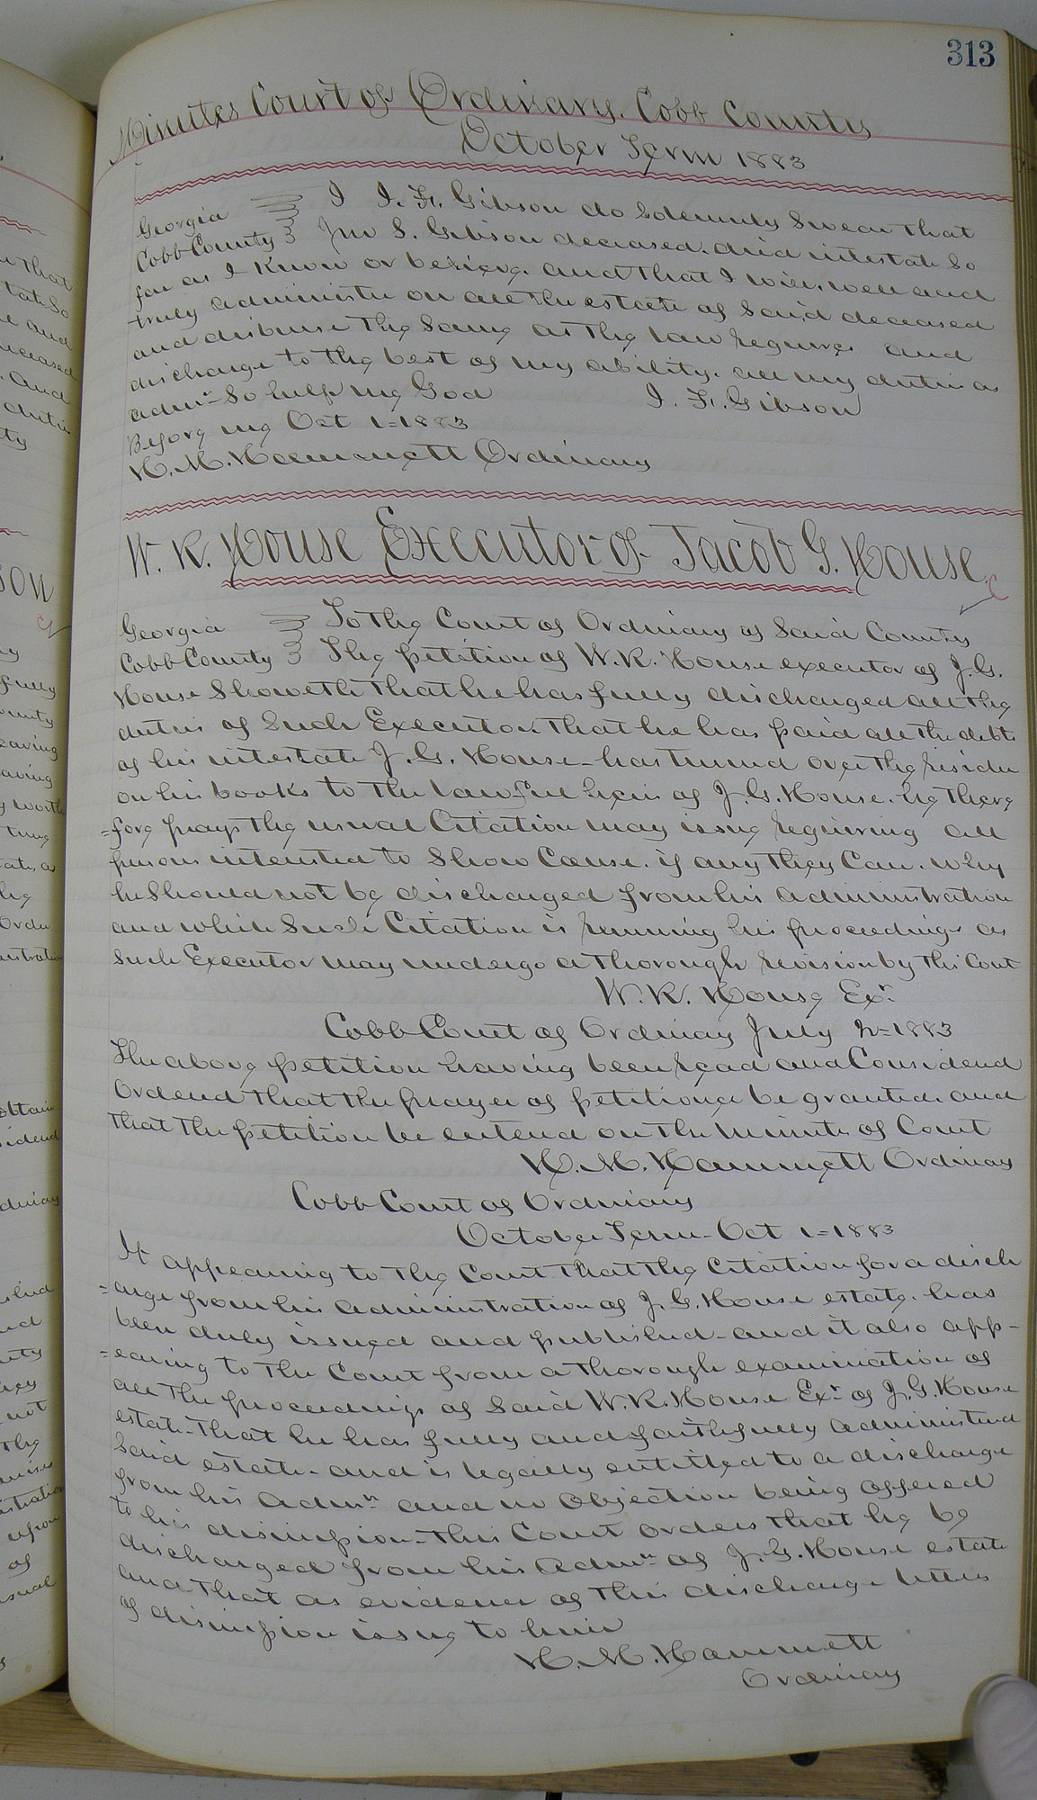 313
Minutes Court of Ordinary. Cobb County
October Term 1883
Georgia I I. F. Gibson do Solemnly Swear that
Cobb County Jno S. Gibson deceased. died intestate So
far as I Know or believe. and that I will. well and
truly administer on all the estate of Said deceased
and disburse the Same as the law requires and
discharge to the best of my ability. all my duties as
admr So help me God I. F. Gibson
Before me Oct 1=1883
H. M. Hammett Ordinary
W. R. House Executor of Jacob G. House
Georgia To the Court of Ordinary of Said County
Cobb County The petition of W. R. House executor of J. G.
House Showeth That he has fully discharged all the
duties of Such Executor. That he has paid all the debts
of his intestate J. G. House - has turned over the residue
on his books to the lawful heirs of J. G. House. he there
=fore prays the usual Citation may issue requiring all
persons interested to Show Cause. if any they Can. why
he Should not be discharged from his administration
and while Such Citation is running his proceedings as
Such Executor may undergo a thorough revision by this Court
W. R. House Exr.
Cobb Court of Ordinary July 2=1883
The above petition having been read and Considered
Ordered that the prayer of petitioner be granted. and
that the petition be entered on the minutes of Court
H. M. Hammett Ordinary
Cobb Court of Ordinary
October Term - Oct 1=1883
It appearing to the Court that the Citation for a disch
=arge from his administration of J. G. House estate. has
been duly issued and published - and it also app-
=earing to the Court from a thorough examination of
all the proceedings of Said W. R. House Exr. of J. G. House
estate - that he has fully and faithfully administered
Said estate - and is legally entitled to a discharge
from his Admn. and no objection being offered
to his dismission - this Court orders that he be
discharged from his Admn of J. G. House estate
and that as evidence of this discharge letters
of dismission issue to him
H. M. Hammett
Ordinary